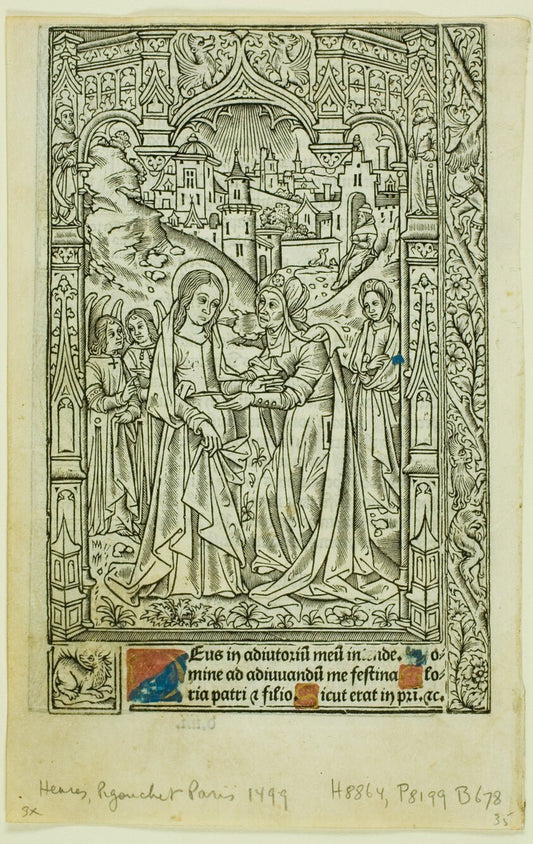 Eus in adiutoriū meū in...nde. o-
mine ad adiuuandū me festina lo-
ria patri ⁊ filio. icut erat in pri. ⁊c.
Heures, Pigouchet Paris 1499 H8864, P8199 B678
3x 35